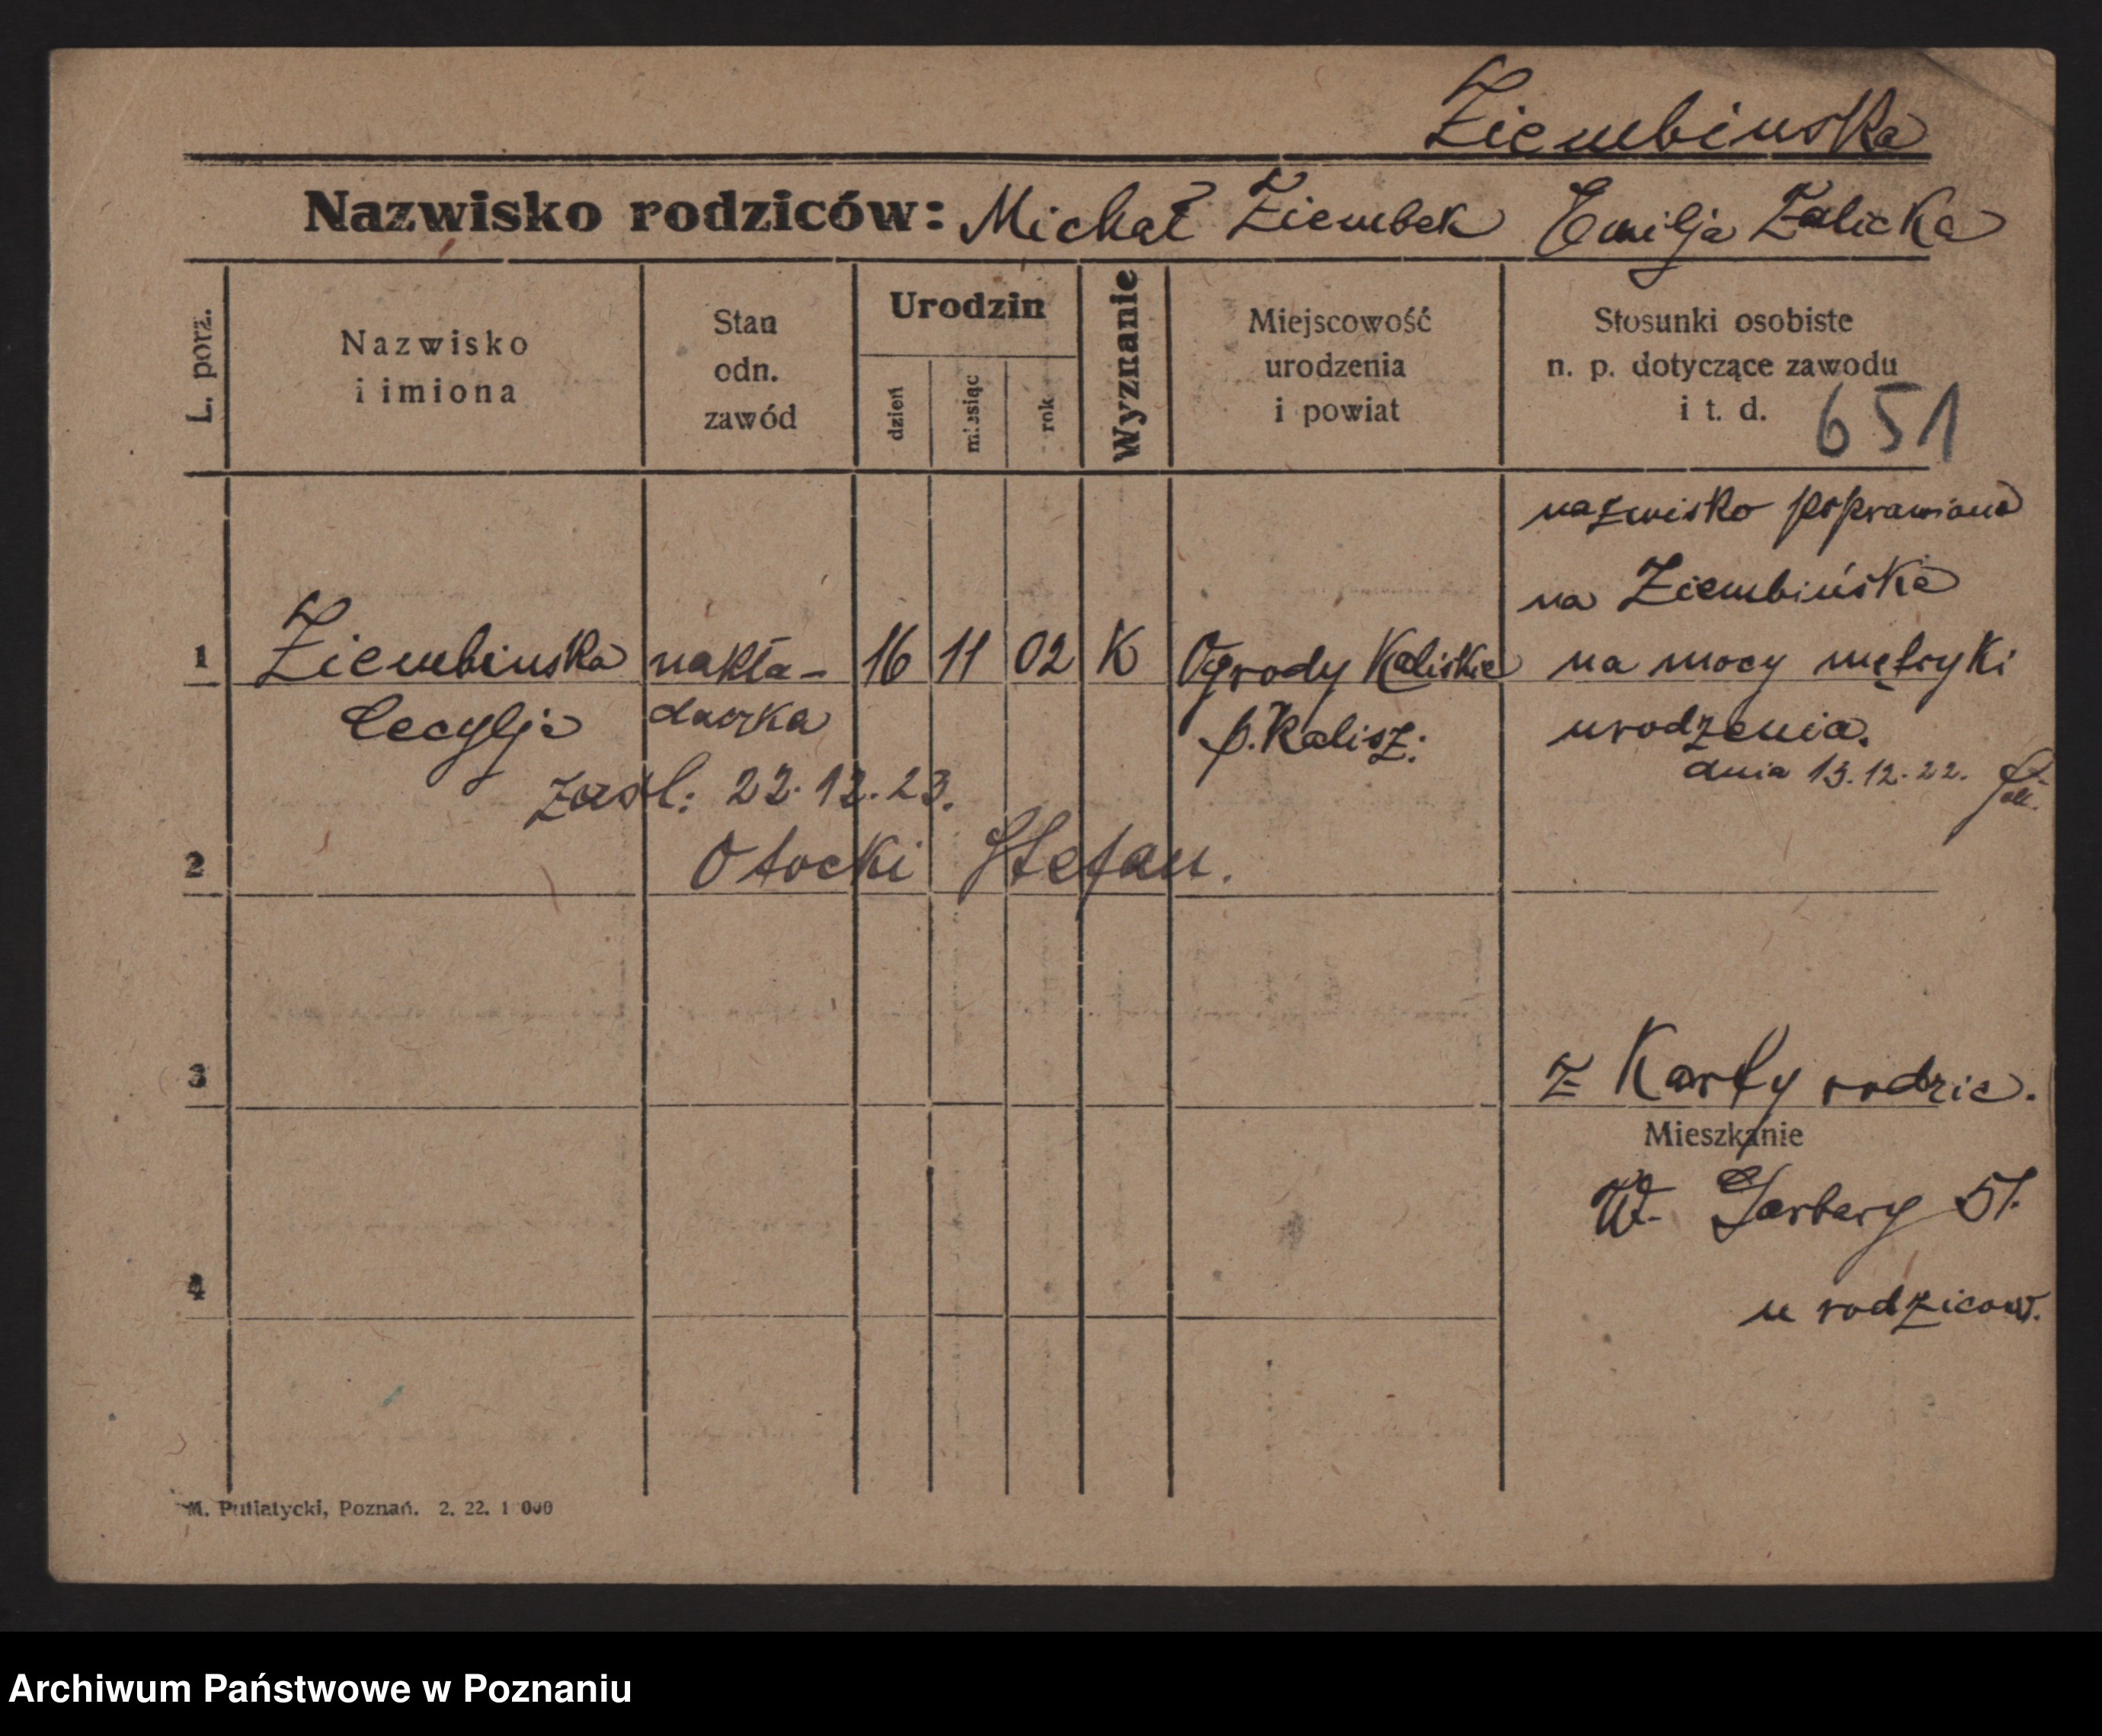 Ziembinska
Nazwisko rodziców: Michał Ziembek Emilja Zalicka
L. porz.
Nazwisko
i imiona
Stan
odn.
zawód
Urodzin
dzień
miesiąc
rok
Wyznanie
Miejscowość
urodzenia
i powiat
Stosunki osobiste
n. p. dotyczące zawodu
i t. d.
651
nazwisko poprawiono
na Ziembińska
na mocy metryki
urodzenia.
dnia 13.12.22.
1 Ziembinska nakła- 16 11 02 K Ogrody Kaliskie
Cecylja daczka p. Kalisz.
zaśl: 22.12.23.
2 Otocki Stefan.
3
z Karty rodzic.
Mieszkanie
W. Garbary 51.
4
u rodzicow.
M. Putiatycki, Poznań. 2. 22. 1 000
Archiwum Państwowe w Poznaniu